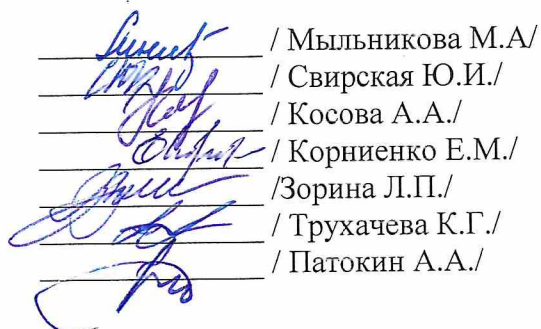 / Мыльникова М.А/
/ Свирская Ю.И./
/ Косова А.А./
/ Корниенко Е.М./
/Зорина Л.П./
/ Трухачева К.Г./
/ Патокин А.А./